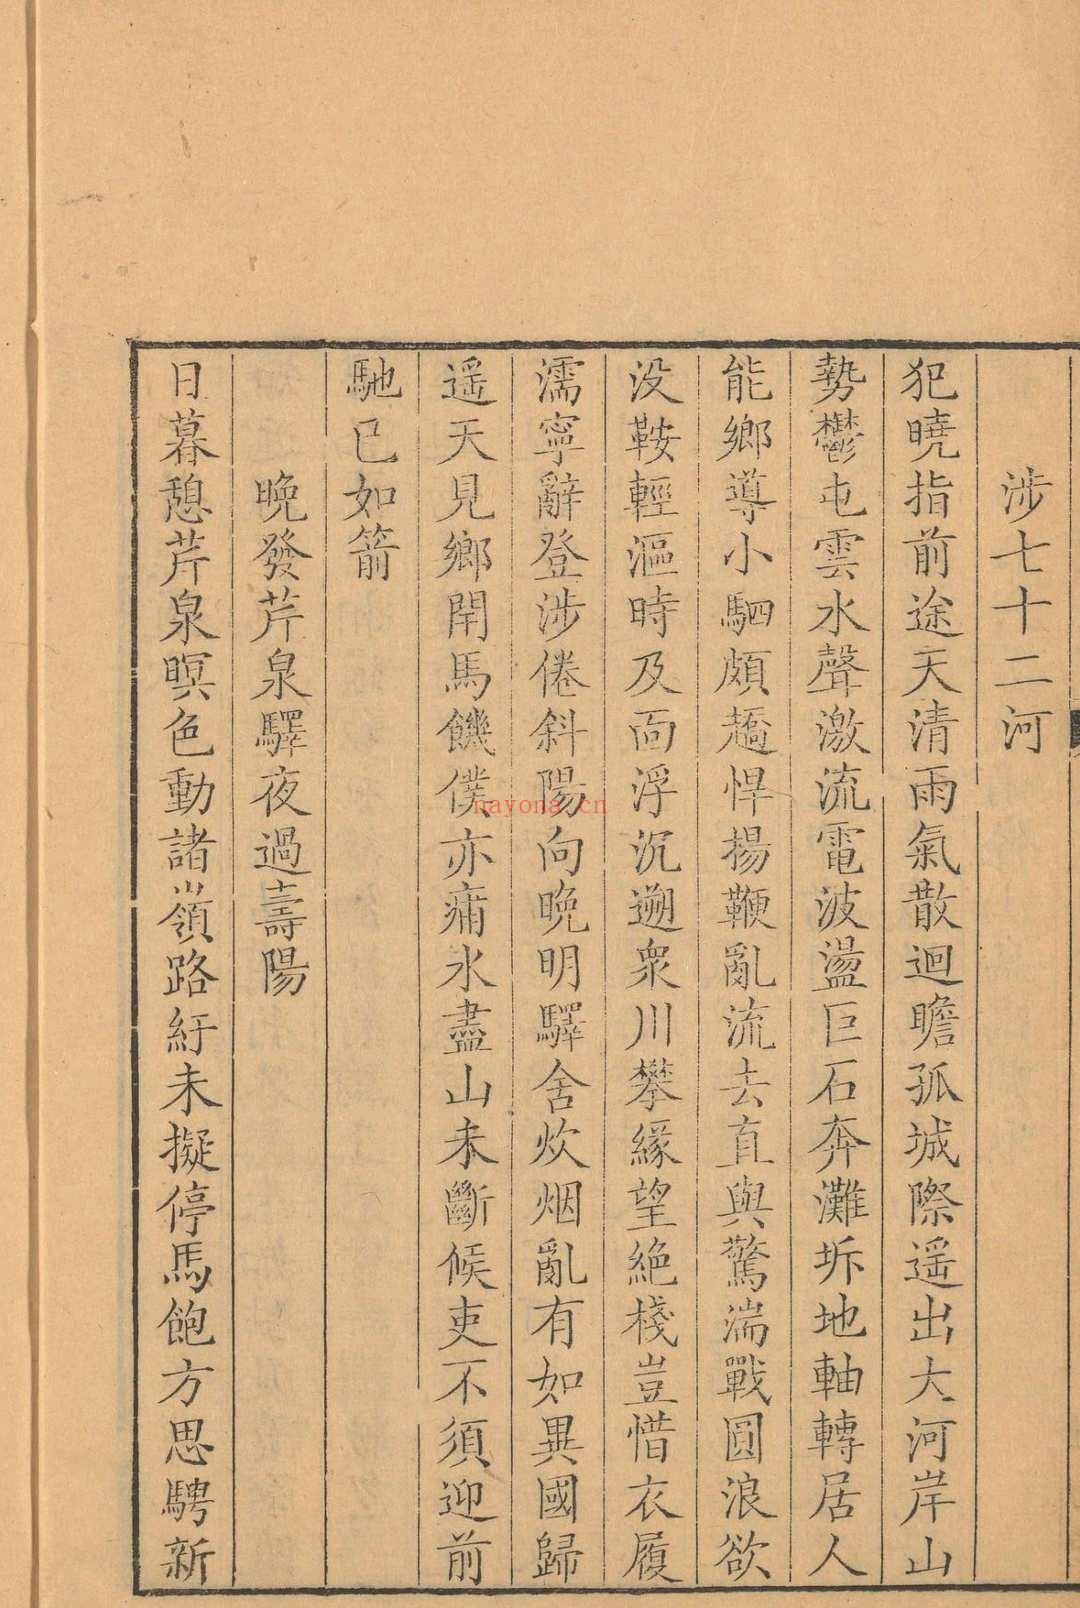 涉七十二河
犯曉指前途天清雨氣散迴瞻孤城際遥出大河岸山
勢鬱屯雲水聲激流電波盪巨石奔灘坼地軸轉居人
能鄉導小駟頗趫悍揚鞭亂流去直與驚湍戰圓浪欲
没鞍輕漚時及面浮沉遡衆川攀緣望絶棧豈惜衣履
濡寧辭登涉倦斜陽向晚明驛舍炊烟亂有如異國歸
遥天見鄉閈馬饑僕亦痡水盡山未斷候吏不須迎前
馳已如箭
晚發芹泉驛夜過壽陽
日暮憩芹泉暝色動諸嶺路紆未擬停馬飽方思騁新
nayona.cn